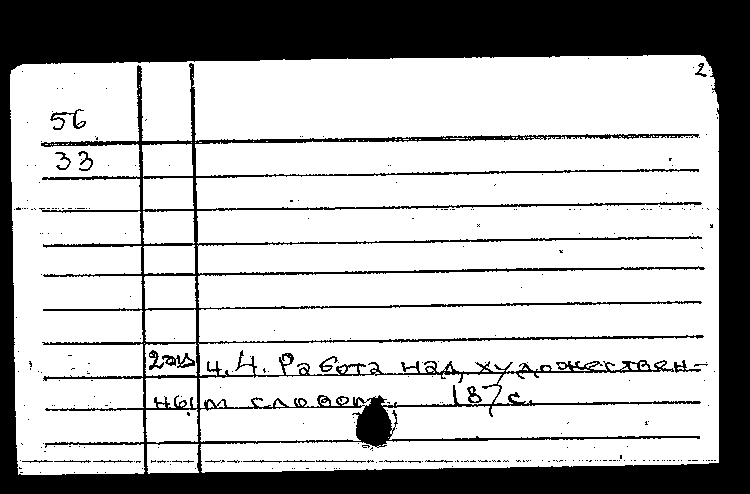 2
56
33
2 экз ч.4. Работа над художествен-
ным словом. 187 с.